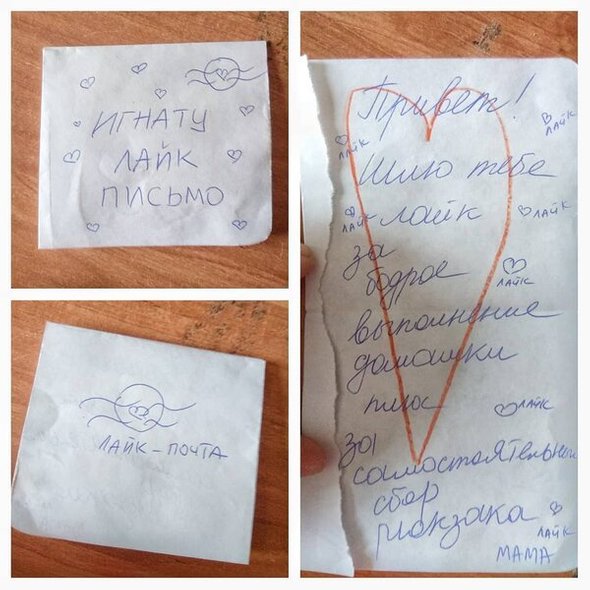 ИГНАТУ
ЛАЙК
ПИСЬМО
ЛАЙК-ПОЧТА
Привет!
ЛАЙК
ЛАЙК
Шлю тебе
лайк
ЛАЙК
ЛАЙК
за
бодрое
ЛАЙК
выполнение
домашки
плюс
ЛАЙК
за
самостоятельный
сбор
рюкзака
ЛАЙК
МАМА